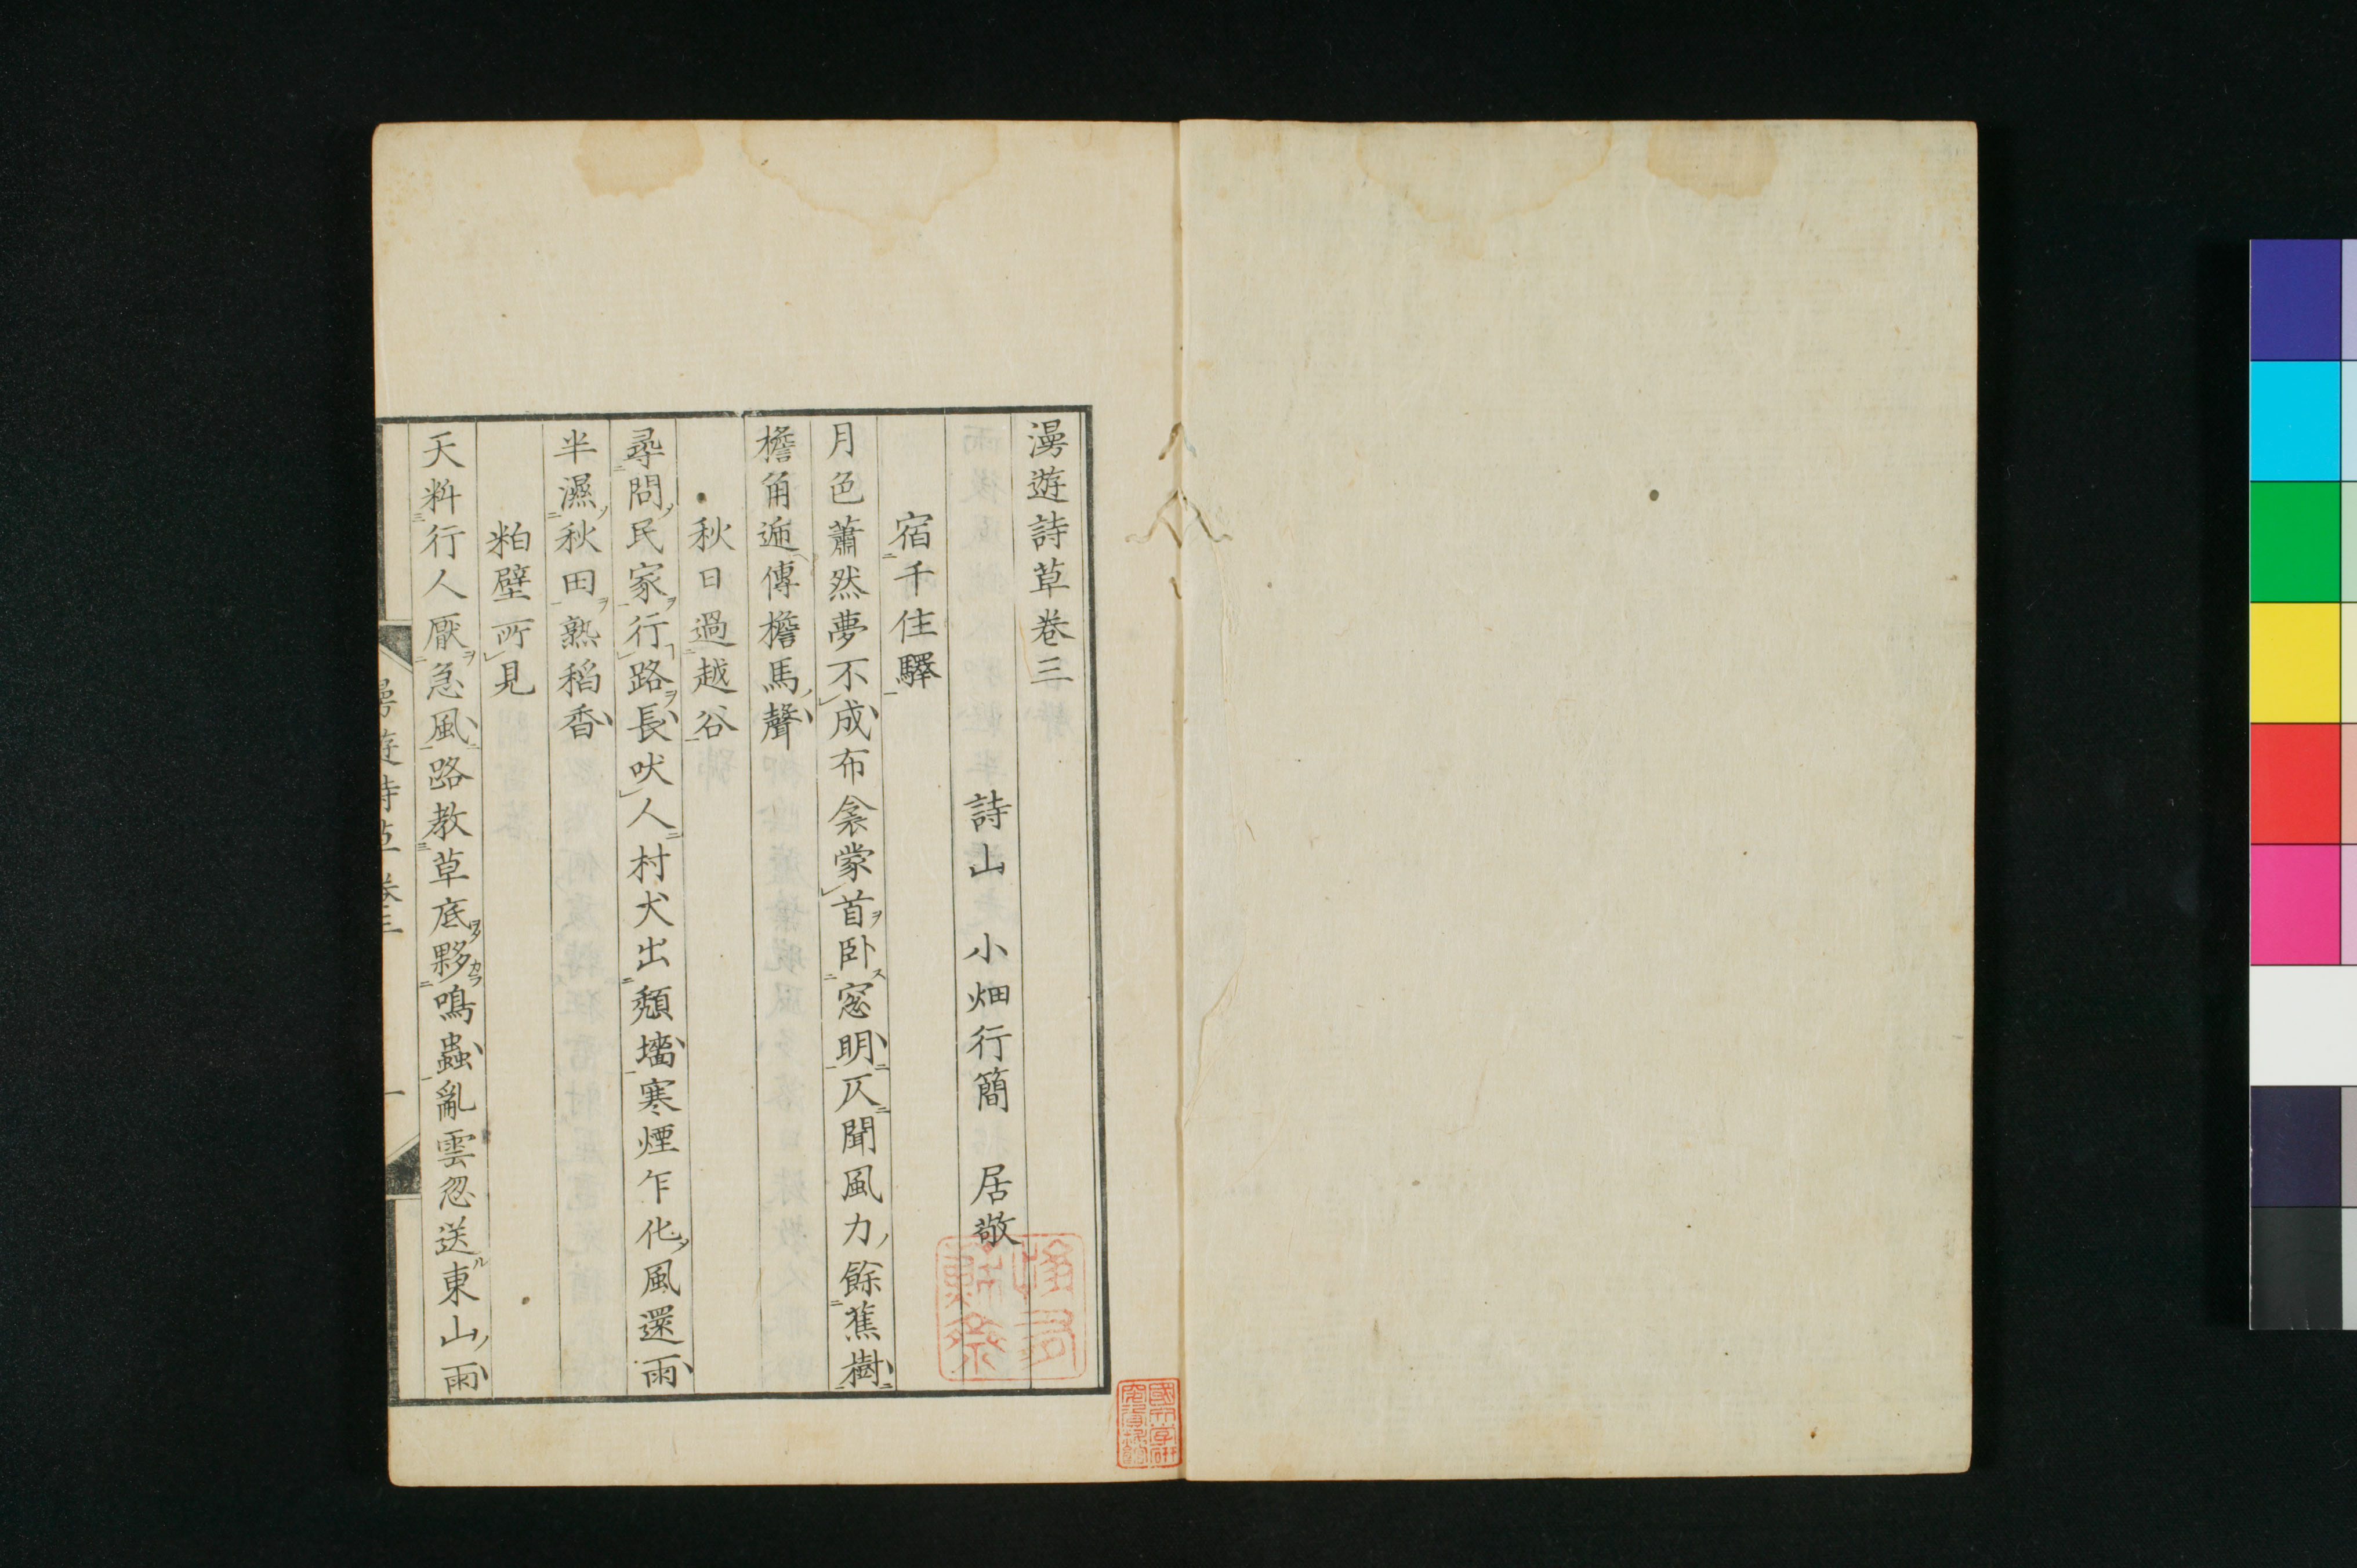 漫遊詩草卷三
詩山 小畑行簡 居敬
宿千住驛
月色蕭然夢不成布衾蒙首臥窓明仄聞風力餘蕉樹
檐角遞傳檐馬聲
秋日過越谷
尋問民家行路長吠人村犬出頽墻寒煙乍化風還雨
半濕秋田熟稻香
粕壁所見
天料行人厭急風路教草底夥鳴蟲亂雲忽送東山雨
漫遊詩草 卷三 一